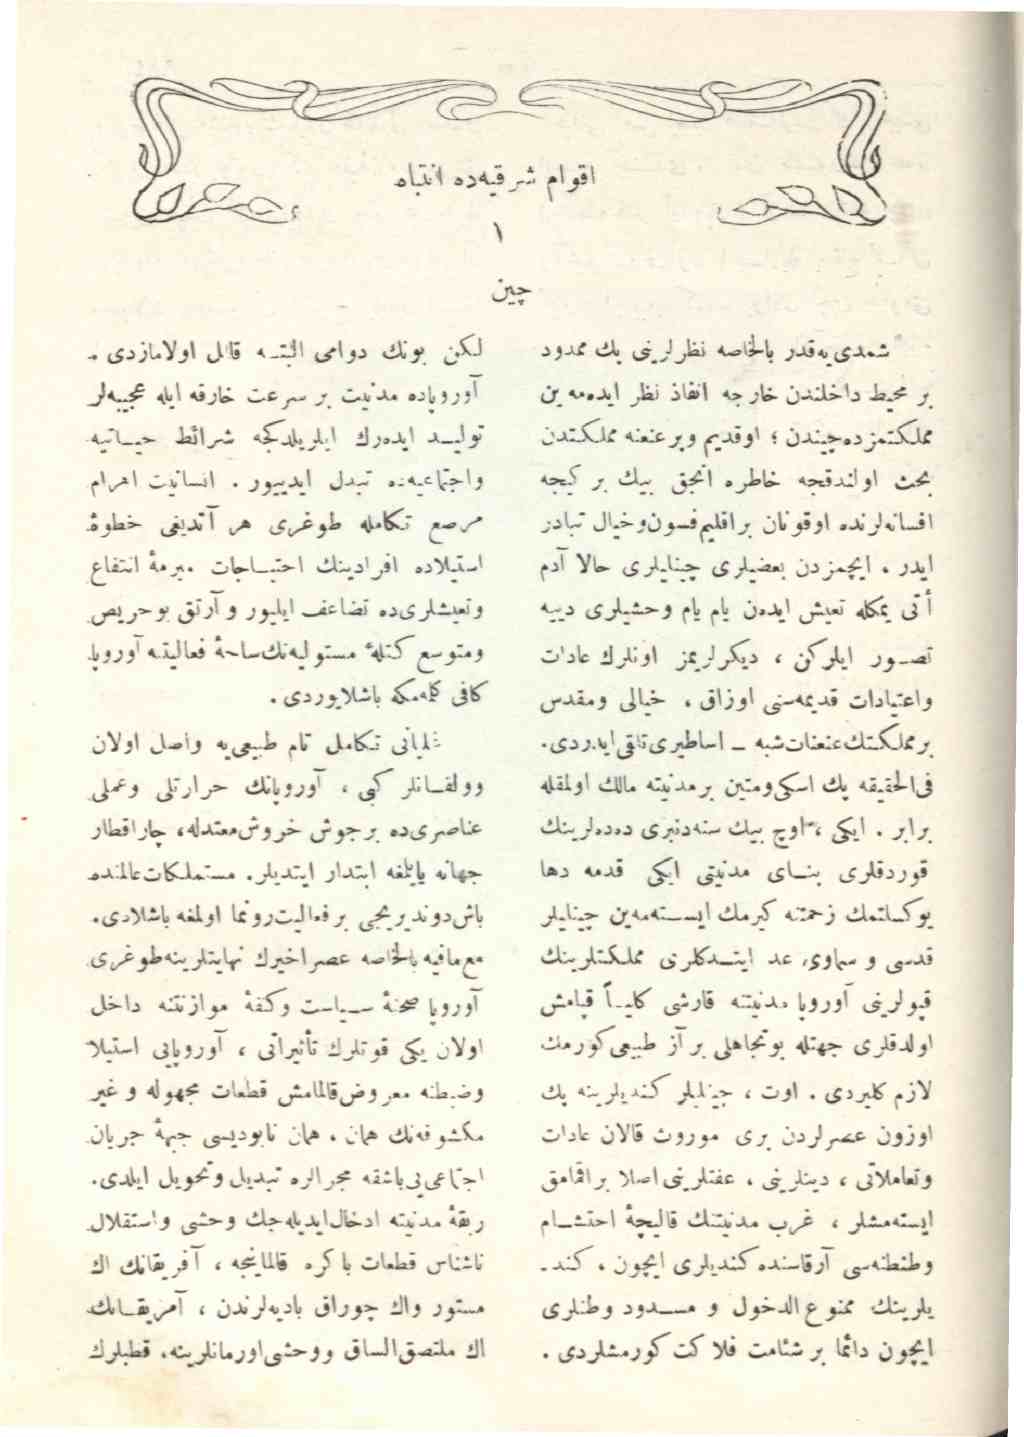 اقوام شرقیه‌ده انتباه
۱
چین
شمدی‌یه‌قدر بالخاصه نظرلرینی پك محدود
بر محیط داخلندن خارجه انفاذ نظر ایده‌مه‌ین
مملكتمزده‌چیندن ؛ اوقدیم وپرعنعنه مملكتدن
بحث اولندقجه خاطره آنجق بیك بر كیجه
افسانه‌لرنده اوقونان براقلیم‌فسون‌وخیال تبادر
ایدر . ایچمزدن بعضیلری چینلیلری حالا آدم
أتی یمكله تعیش ایده‌ن یام یام وحشیلری دییه
تصـور ایلركن ، دیكرلریمز اونلرك عادات
واعتیادات قدیمه‌سنی اوزاق ، خیالی ومقدس
برمملكتك‌عنعنات‌شبه ـ اساطیری‌تلقی‌ایدردی.
فی‌الحقیقه پك اسكی‌ومتین برمدنیته مالك اولمقله
برابر . ایكی ، اوچ بیك سنه‌دنبری ده‌ده‌لرینك
قوردقلری بنـای مدنیتی ایكی قدمه دها
یوكسلتمك زحمتنه كیرمك ایستـه‌مه‌ین چینلیلر
قدسی و سماوی، عد ایتـدكلری مملكتلرینك
قپولرینی آوروپا مدنیتنه قارشی كلیـاً قپامش
اولدقلری جهتله بوتجاهلی بر آز طبیعی‌كورمك
لازم كلیردی . اوت ، چینلیلر كندیلرینه پك
اوزون عصرلردن بری موروث قالان عادات
وتعاملاتی ، دینلرینی ، عفتلرینی اصلا براقمامق
ایسته‌مشلر ، غرب مدنیتنك قالیچهٔ احتشـام
وطنطنه‌سی آرقاسنده كندیلری ایچون ، كند ـ
یلرینك ممنوع‌الدخول و مسـدود وطنلری
ایچون دائما بر شئامت فلاكت كورمشلردی .
لكن بونك دوامی البتـه قابل اولامازدی .
آوروپاده مدنیت بر سرعت خارقه ایله عجیبه‌لر
تولیـد ایده‌رك ایلریلدكجه شرائط حیـاتیه
واجتماعیه‌ده تبدل ایدییور . انسانیت اهرام
مرصع تكامله طوغری هر آتدیغی خطوهٔ
استیلاده افرادینك احتیـاجات مبرمهٔ انتفاع
وتعیشلری‌ده تضاعف ایلیور و آرتق بوحریص
ومتوسع كتلهٔ مستولیه‌نك‌ساحهٔ فعالیتنه آوروپا
كافی كلمه‌مكه باشلایوردی .
غلیانی تكامل تام طبیعی‌یه واصل اولان
وولقـانلر كبی ، آوروپانك حرارتلی وعملی
عناصری‌ده برجوش خروش‌معتدله، چاراقطار
جهانه یایلمغه ابتدار ایتدیلر. مستملكات‌عالمنده
باش‌دوندیریجی برفعالیت‌رونما اولمغه باشلادی.
مع‌مافیه بالخاصه عصراخیرك نهایتلرینه‌طوغری
آوروپا صحنهٔ سیـاست وكفهٔ موازنتنه داخل
اولان یكی قوتلرك تأثیراتی ، آوروپایی استیلا
وضبطنه معروض‌قالمامش قطعات مجهوله و غیر
مكشوفه‌نك همان . همان نابودیسی جبههٔ جریان
اجتماعی‌یی‌باشقه مجرالره تبدیل وتحویل ایلدی.
ربقهٔ مدنیته ادخال‌ایدیله‌جك وحشی واستقلال
ناشناس قطعات باكره قالماینجه ، آفریقانك اك
مستور واك چوراق بادیه‌لرندن ، آمریقـانك
اك ملتصق‌الساق ووحشی‌اورمانلرینه، قطبلرك